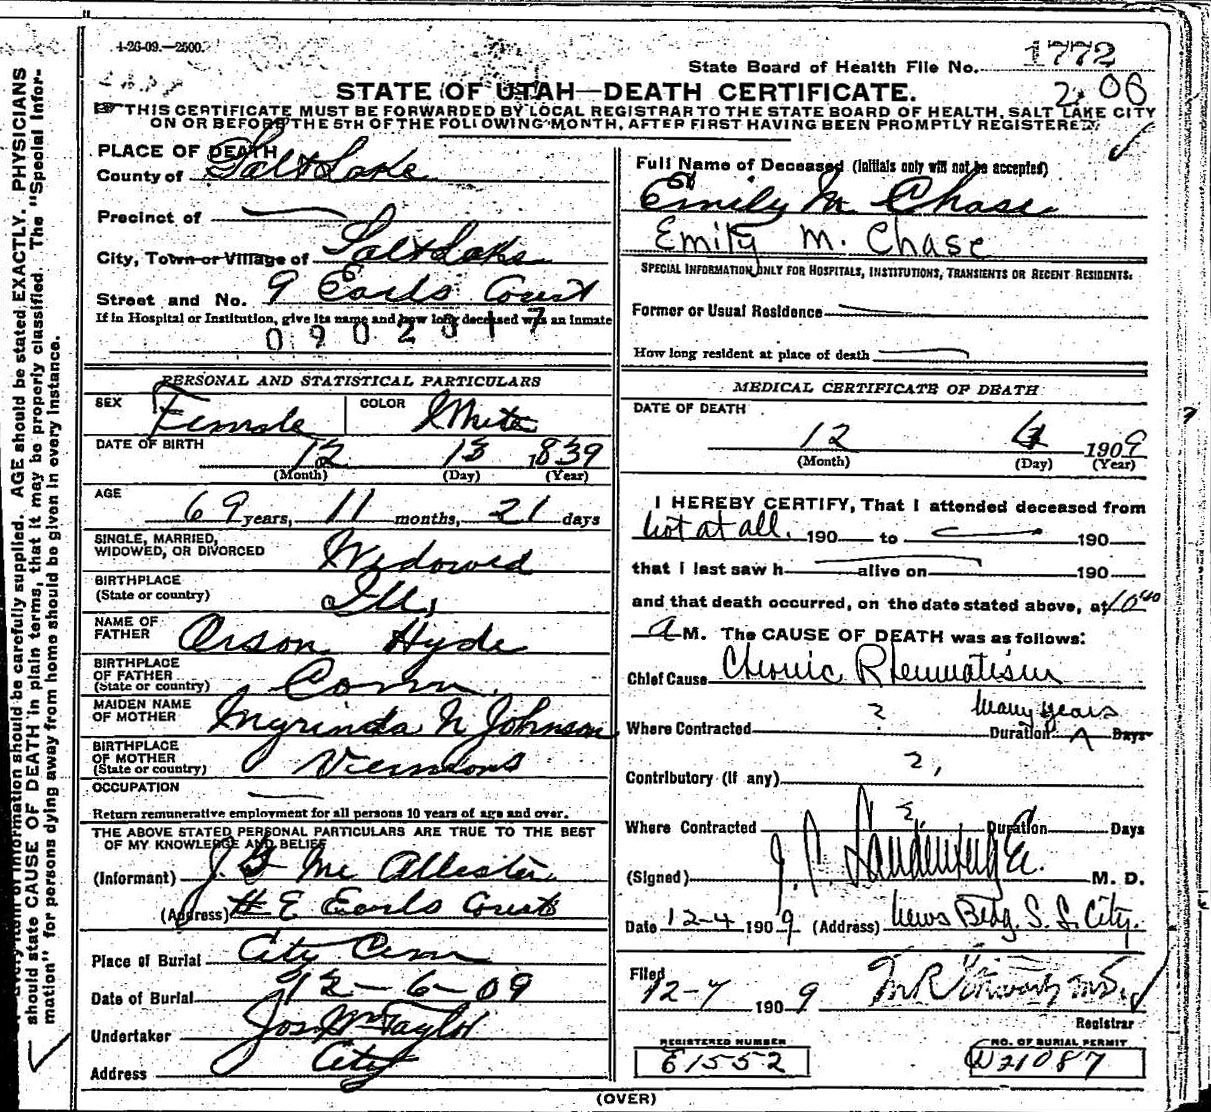 1-26-09.—2500.
State Board of Health File No. 1772
2.06
STATE OF UTAH—DEATH CERTIFICATE.
THIS CERTIFICATE MUST BE FORWARDED BY LOCAL REGISTRAR TO THE STATE BOARD OF HEALTH, SALT LAKE CITY
ON OR BEFORE THE 5TH OF THE FOLLOWING MONTH, AFTER FIRST HAVING BEEN PROMPTLY REGISTERED.
PLACE OF DEATH
County of Salt Lake
Precinct of
City, Town or Village of Salt Lake
Street and No. 9 Earls Court
If in Hospital or Institution, give its name and how long deceased was an inmate
0902017
PERSONAL AND STATISTICAL PARTICULARS
SEX Female COLOR White
DATE OF BIRTH 12 13 1839
(Month) (Day) (Year)
AGE 69 years, 11 months, 21 days
SINGLE, MARRIED,
WIDOWED, OR DIVORCED Widowed
BIRTHPLACE
(State or country) Ills,
NAME OF
FATHER Orson Hyde
BIRTHPLACE
OF FATHER
(State or country) Conn.
MAIDEN NAME
OF MOTHER Myrinda N Johnson
BIRTHPLACE
OF MOTHER
(State or country)
OCCUPATION
Return remunerative employment for all persons 10 years of age and over.
THE ABOVE STATED PERSONAL PARTICULARS ARE TRUE TO THE BEST
OF MY KNOWLEDGE AND BELIEF
(Informant) J. G Mc Allister
(Address) # E Earls Court
Place of Burial City Cem
Date of Burial 12-6-09
Undertaker Jos. Wm Taylor
Address City
Full Name of Deceased (Initials only will not be accepted)
Emily M Chase
Emily M. Chase
SPECIAL INFORMATION ONLY FOR HOSPITALS, INSTITUTIONS, TRANSIENTS OR RECENT RESIDENTS.
Former or Usual Residence
How long resident at place of death
MEDICAL CERTIFICATE OF DEATH
DATE OF DEATH
12 4 1909
(Month) (Day) (Year)
I HEREBY CERTIFY, That I attended deceased from
not at all. 190 to 190
that I last saw h alive on 190
and that death occurred, on the date stated above, at 10 40
A M. The CAUSE OF DEATH was as follows:
Chief Cause Chronic Rheumatism
Many years
Where Contracted ? Duration Days
Contributory (if any) ?
Where Contracted ? Duration Days
(Signed) M. D.
Date 12-4 1909 (Address) News Bldg. S. L. City.
Filed 12-7 1909
Registrar
REGISTERED NUMBER
E1552
NO. OF BURIAL PERMIT
W21087
(OVER)
Every item of information should be carefully supplied. AGE should be stated EXACTLY. PHYSICIANS
should state CAUSE OF DEATH in plain terms, that it may be properly classified. The "Special Infor-
mation" for persons dying away from home should be given in every instance.